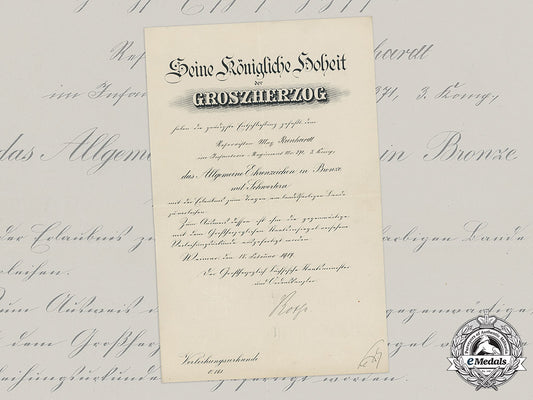 Seine Königliche Hoheit
der
GROSZHERZOG
haben die gnädigste Entschließung gefaßt dem
Reservisten Max Reinhardt
im Infanterie-Regiment No. 371, 3. Komp.
das Allgemeine Ehrenzeichen in Bronze
mit Schwertern
mit der Erlaubnis zum Tragen am landesfarbigen Bande
zu verleihen.
Zum Ausweis dessen ist ihm die gegenwärtige
mit dem Großherzoglichen Kanzleisiegel versehene
Verleihungsurkunde ausgefertigt worden.
Weimar, den 18. Februar 1918
Der Großherzoglich Sächsische Staatsminister
und Ordenskanzler
Verleihungsurkunde
eMedals